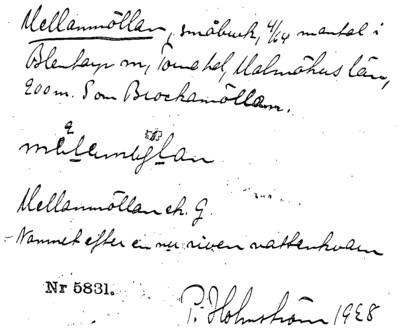 Mellanmöllan, småbruk, 4/64 mantal i
Blentarp sn, Torna hd, Malmöhus län,
200 m. S om Brockamöllan.
Mellanmöllan ek. G.
Namnet efter en nu riven vattenkvarn
Nr 5831.
P. Holmström 1928